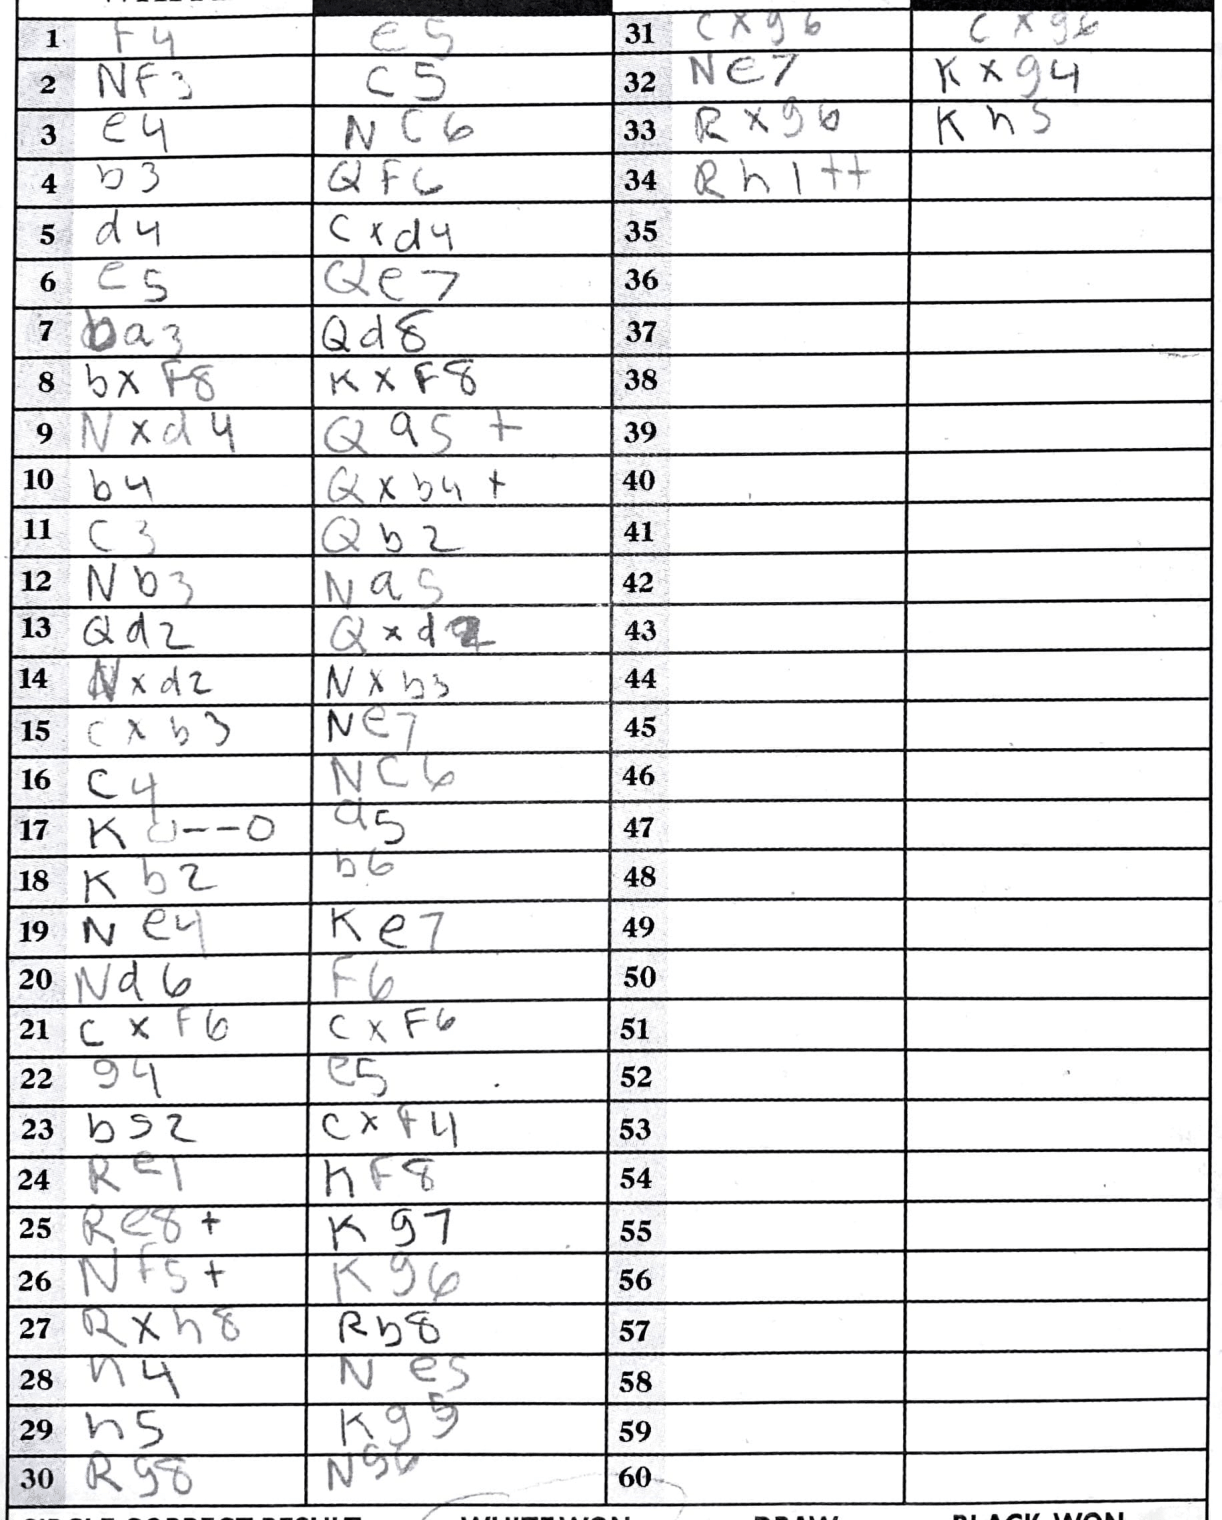 1 F4 e5 31 Cxg6 Cxg6
2 NF3 C5 32 Ne7 Kxg4
3 e4 NC6 33 Rxg6 Kh5
4 b3 QF6 34 Rh1++
5 d4 Cxd4 35
6 e5 Qe7 36
7 ba3 Qd8 37
8 bxF8 KxF8 38
9 Nxd4 Qa5+ 39
10 b4 Qxb4+ 40
11 C3 Qb2 41
12 Nb3 Na5 42
13 Qd2 Qxd2 43
14 Nxd2 Nxb3 44
15 Cxb3 Ne7 45
16 C4 NC6 46
17 K 0--0 a5 47
18 Kb2 b6 48
19 Ne4 Ke7 49
20 Nd6 F6 50
21 CxF6 CxF6 51
22 g4 e5 52
23 bg2 CxF4 53
24 Re1 KF8 54
25 Re8+ Kg7 55
26 NF5+ Kg6 56
27 Rxh8 Rb8 57
28 h4 Ne5 58
29 h5 Kg5 59
30 Rg8 Ng6 60